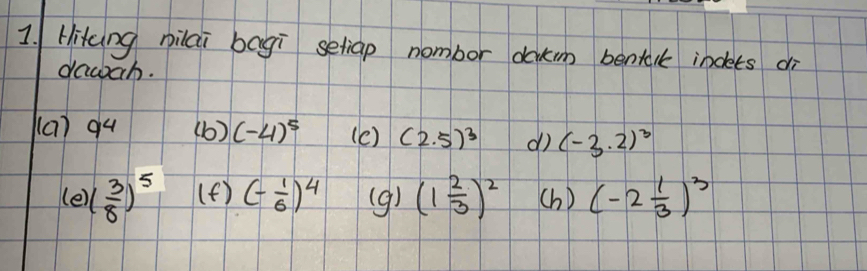 1. Hitung nilai bagi setiap nombor dalam bentuk indeks di
dawah.
(a) 9⁴ (b) (-4)⁵ (c) (2.5)³ d) (-3.2)³
(e) (3/8)⁵ (f) (-1/6)⁴ (g) (1 2/3)² (h) (-2 1/3)³